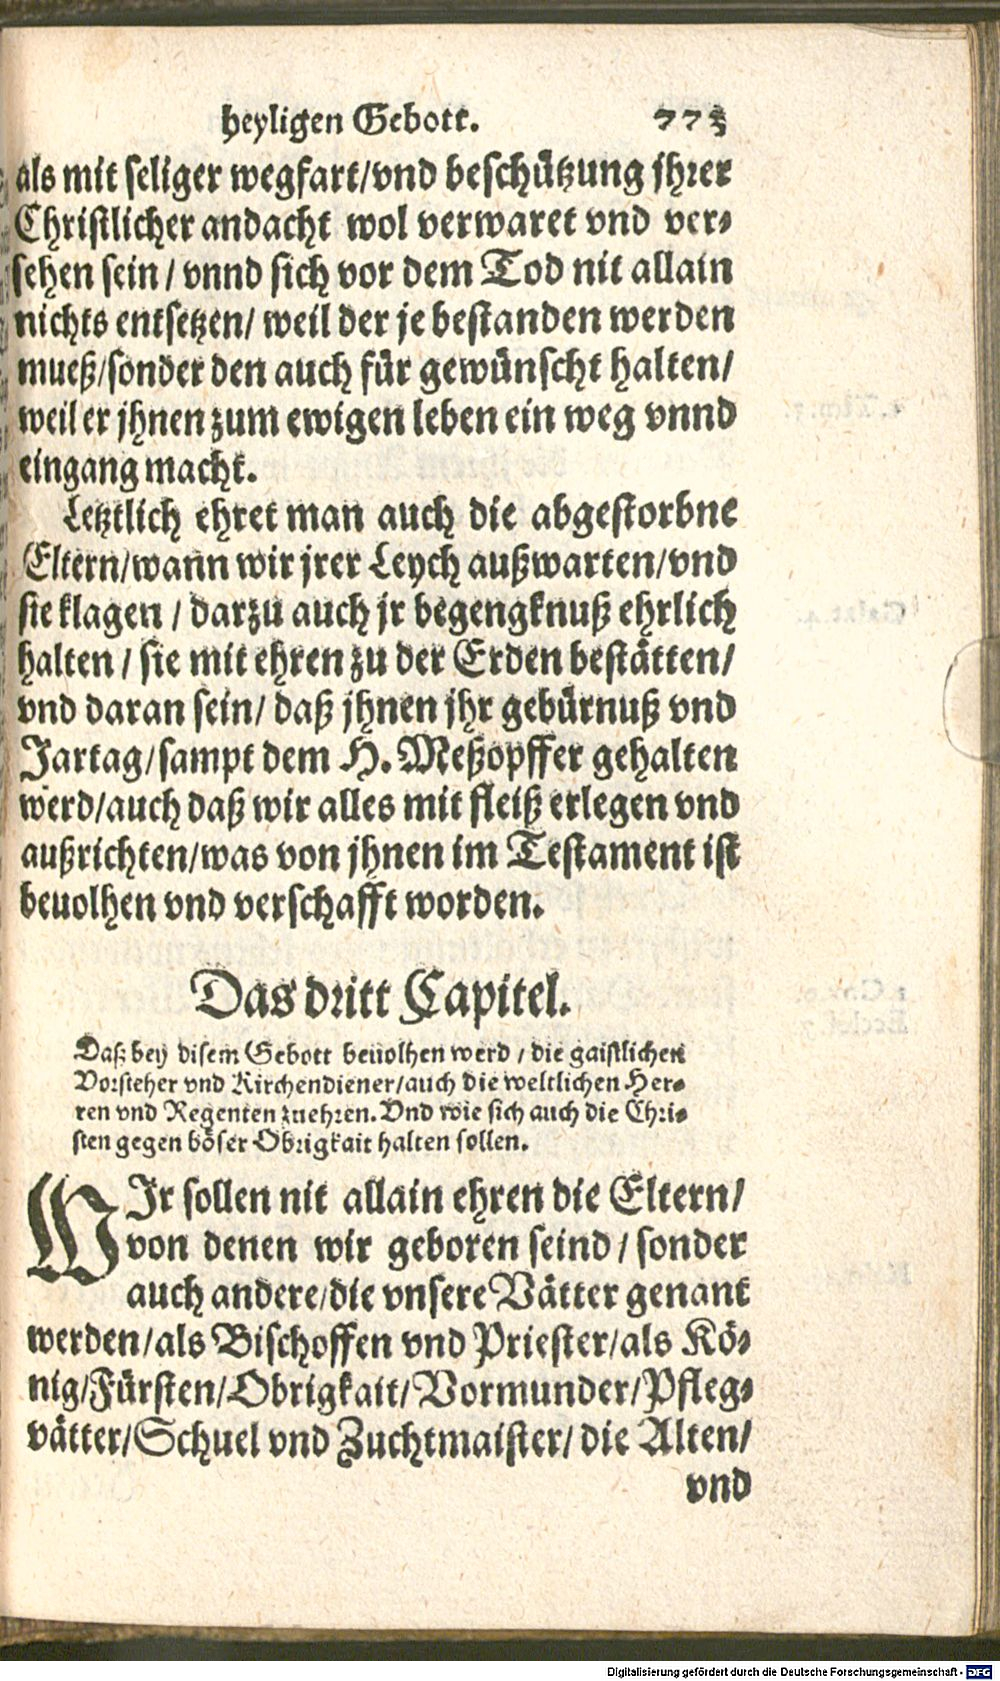 heyligen Gebott. 773
als mit seliger wegfart/vnd beschützung jhrer
Christlicher andacht wol verwaret vnd ver-
sehen sein / vnnd sich vor dem Tod nit allain
nichts entsetzen/ weil der je bestanden werden
mueß/sonder den auch für gewünscht halten/
weil er jhnen zum ewigen leben ein weg vnnd
eingang macht.
Letztlich ehret man auch die abgestorbne
Eltern/wann wir jrer Leych außwarten/vnd
sie klagen / darzu auch jr begengknuß ehrlich
halten / sie mit ehren zu der Erden bestätten/
vnd daran sein/ daß jhnen jhr gebürnuß vnd
Jartag/sampt dem H. Meßopffer gehalten
werd/auch daß wir alles mit fleiß erlegen vnd
außrichten/was von jhnen im Testament ist
beuolhen vnd verschafft worden.
Das dritt Capitel.
Daß bey disem Gebott beuolhen werd / die gaistlichen
Vorsteher vnd Kirchendiener/auch die weltlichen Her-
ren vnd Regenten zuehren. Vnd wie sich auch die Chri-
sten gegen böser Obrigkait halten sollen.
WIr sollen nit allain ehren die Eltern/
von denen wir geboren seind / sonder
auch andere/die vnsere Vätter genant
werden/als Bischoffen vnd Priester/als Kö-
nig/Fürsten/Obrigkait/Vormunder/Pfleg-
vätter/Schuel vnd Zuchtmaister/ die Alten/
vnd
Digitalisierung gefördert durch die Deutsche Forschungsgemeinschaft - DFG